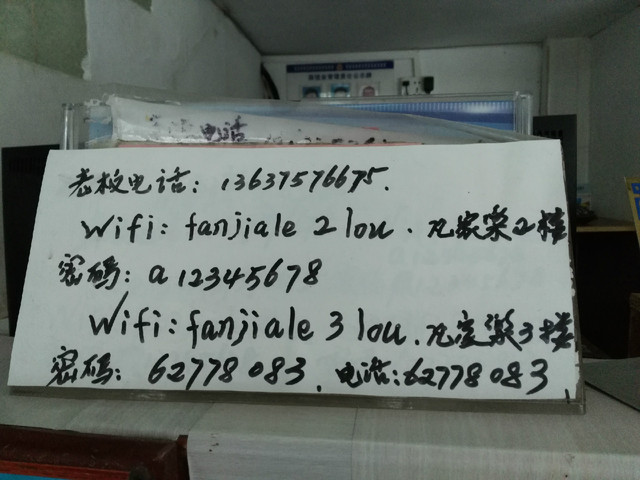 电话
老板电话：13637576675.
Wifi: fanjiale 2 lou. 凡家荣2楼
密码：a 12345678
Wifi: fanjiale 3 lou. 凡家樂3楼
密码：62778083. 电话：62778083